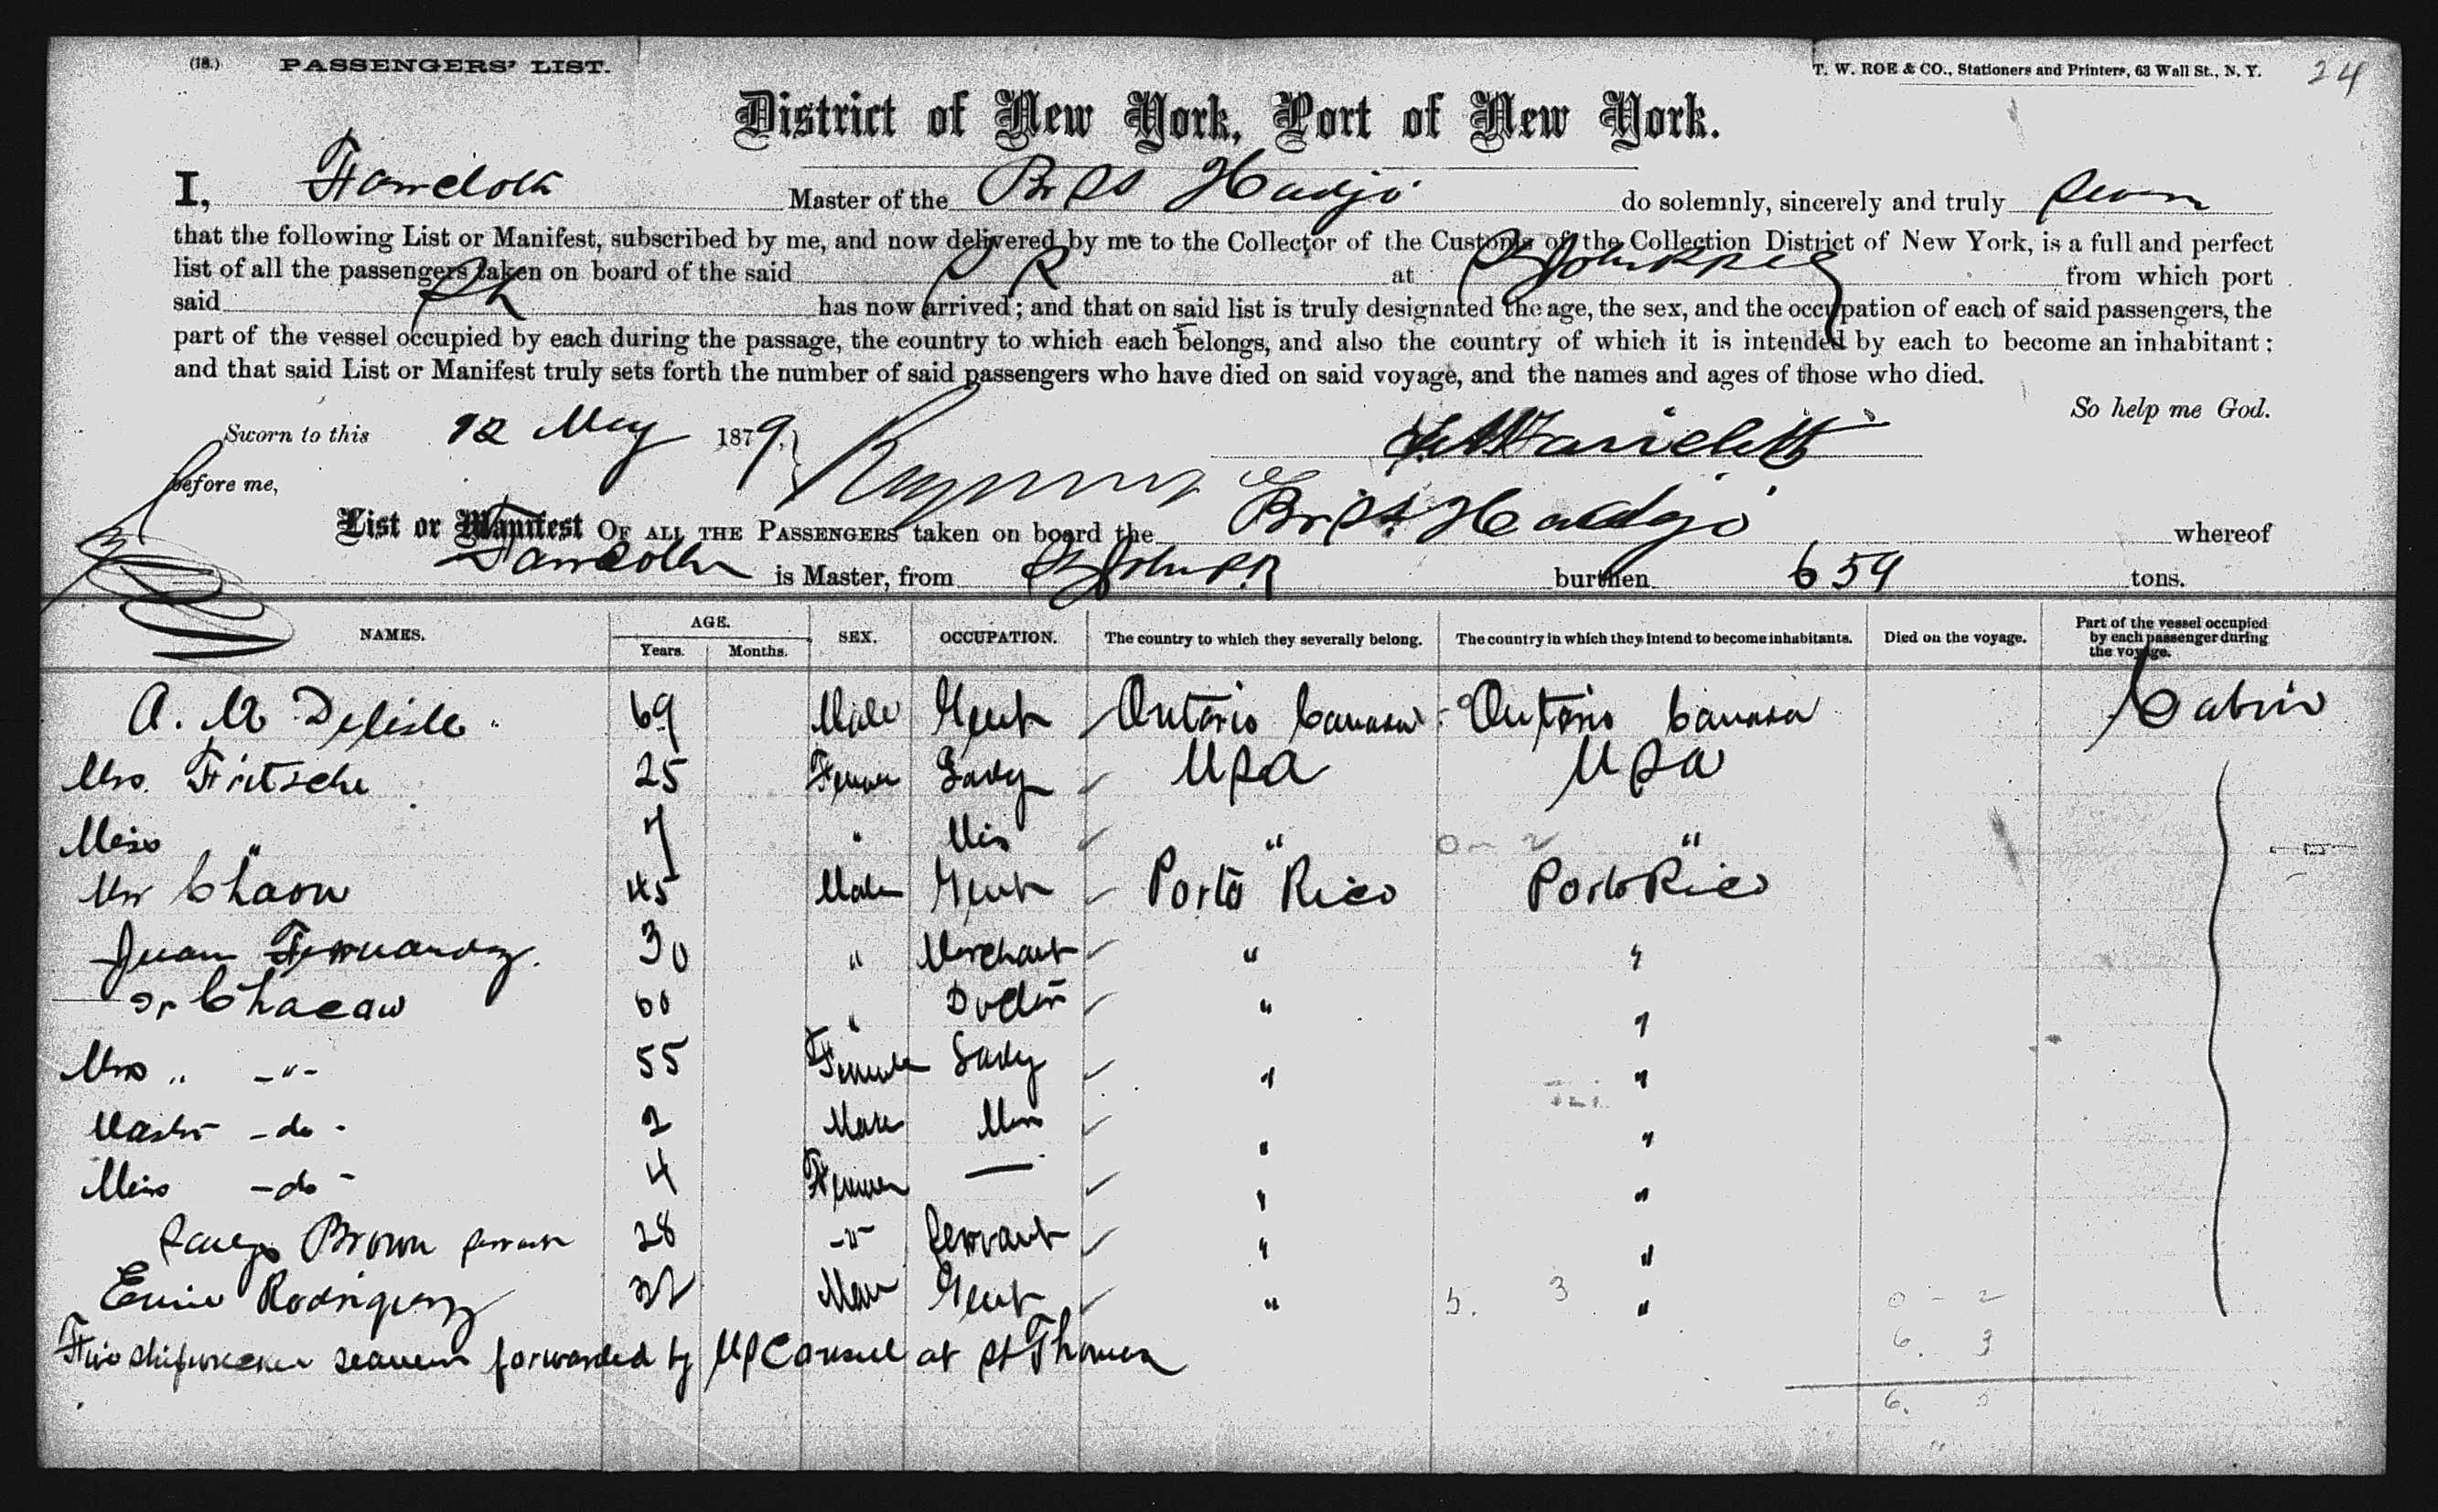 (18.) PASSENGERS' LIST.
T. W. ROE & CO., Stationers and Printers, 63 Wall St., N. Y. 24
District of New York, Port of New York.
I, Master of the Br SS Hadji do solemnly, sincerely and truly swear
that the following List or Manifest, subscribed by me, and now delivered by me to the Collector of the Customs of the Collection District of New York, is a full and perfect
list of all the passengers taken on board of the said at St Johns from which port
said has now arrived; and that on said list is truly designated the age, the sex, and the occupation of each of said passengers, the
part of the vessel occupied by each during the passage, the country to which each belongs, and also the country of which it is intended by each to become an inhabitant:
and that said List or Manifest truly sets forth the number of said passengers who have died on said voyage, and the names and ages of those who died.
So help me God.
Sworn to this 12 May 1879.
before me,
List or Manifest OF ALL THE PASSENGERS taken on board the Br SS Hadji whereof
is Master, from St Johns P.R burthen 659 tons.
NAMES. AGE. Years. Months. SEX. OCCUPATION. The country to which they severally belong. The country in which they intend to become inhabitants. Died on the voyage. Part of the vessel occupied by each passenger during the voyage.
A. M Delisle 69 Male Gent Ontario Canada Ontario Canada Cabin
Mrs. Fritsche 25 Female Lady USA USA
Miss " 7 " Mis " "
Mr Chaou 45 Male Gent Porto Rico Porto Rico
Juan Fernandez. 30 " Merchant " "
Dr Chacaw 60 " Doctor " "
Mrs " -"- 55 Female Lady " "
Master -do- 2 Male " "
Miss -do- 4 Female — " "
Brown servant 28 -"- Servant " "
Rodriguez 32 Male Gent " "
Five shipwrecked seamen forwarded by US Consul at St Thomas